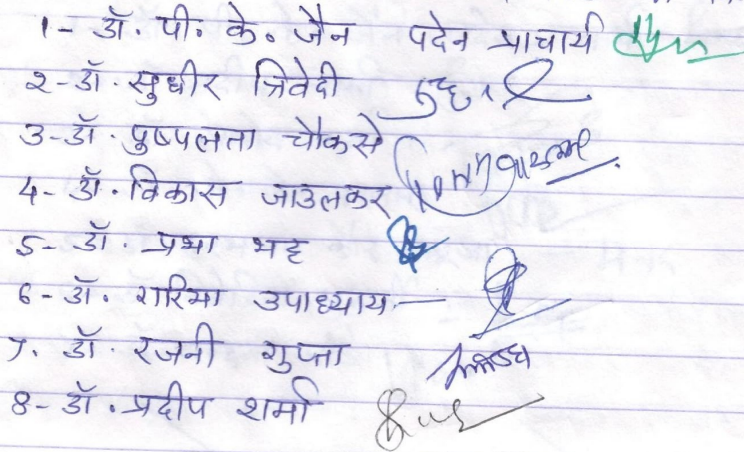 1- डॉ. पी. के. जैन पदेन प्राचार्य
2-डॉ. सुधीर त्रिवेदी
3-डॉ. पुष्पलता चौकसे
4- डॉ. विकास जाउलकर
5- डॉ. प्रभा भट्ट
6- डॉ. गरिमा उपाध्याय
7. डॉ. रजनी गुप्ता
8-डॉ. प्रदीप शर्मा